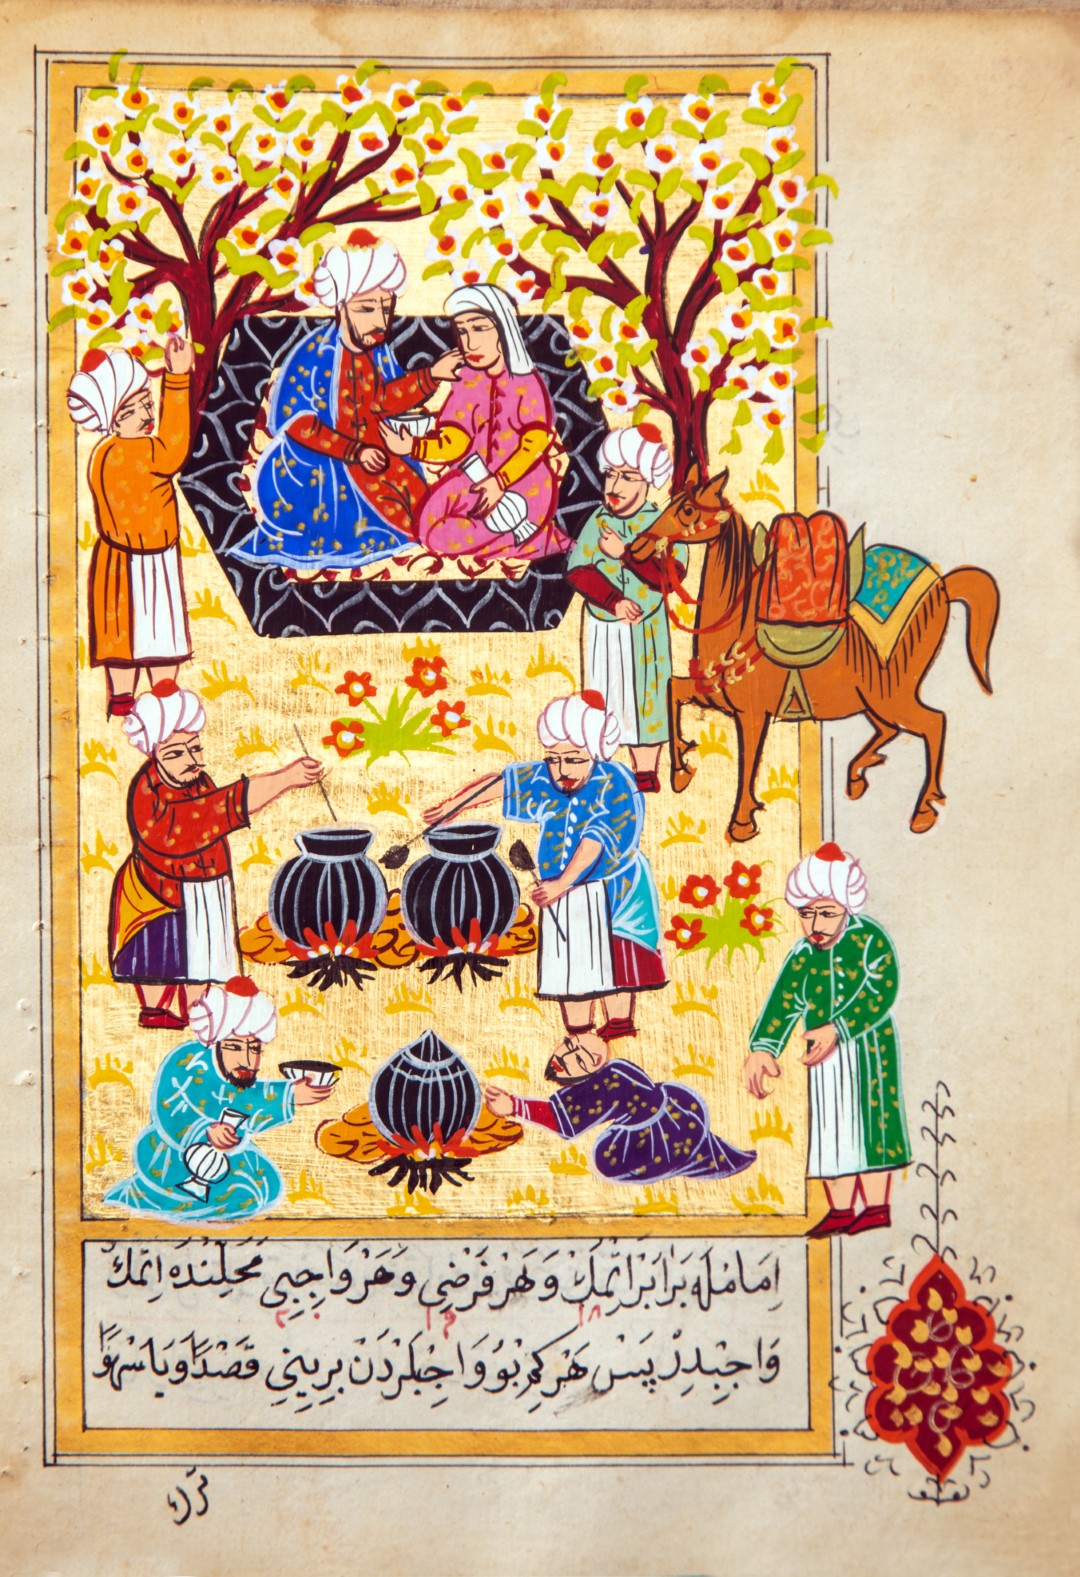 اِمَامْلَه بَرَابَرْ اِتْمَكْ وَهَرْ فَرْضِي وَهَرْ وَاجِبِي مَحَلِّنْدَه اِتْمَكْ
وَاجِبْدِرْ پَسْ هَرْ كِمْ بُو وَاجِبْلَرْدَنْ بِرِينِي قَصْدًا وَيَا سَهْوًا
تَرْك